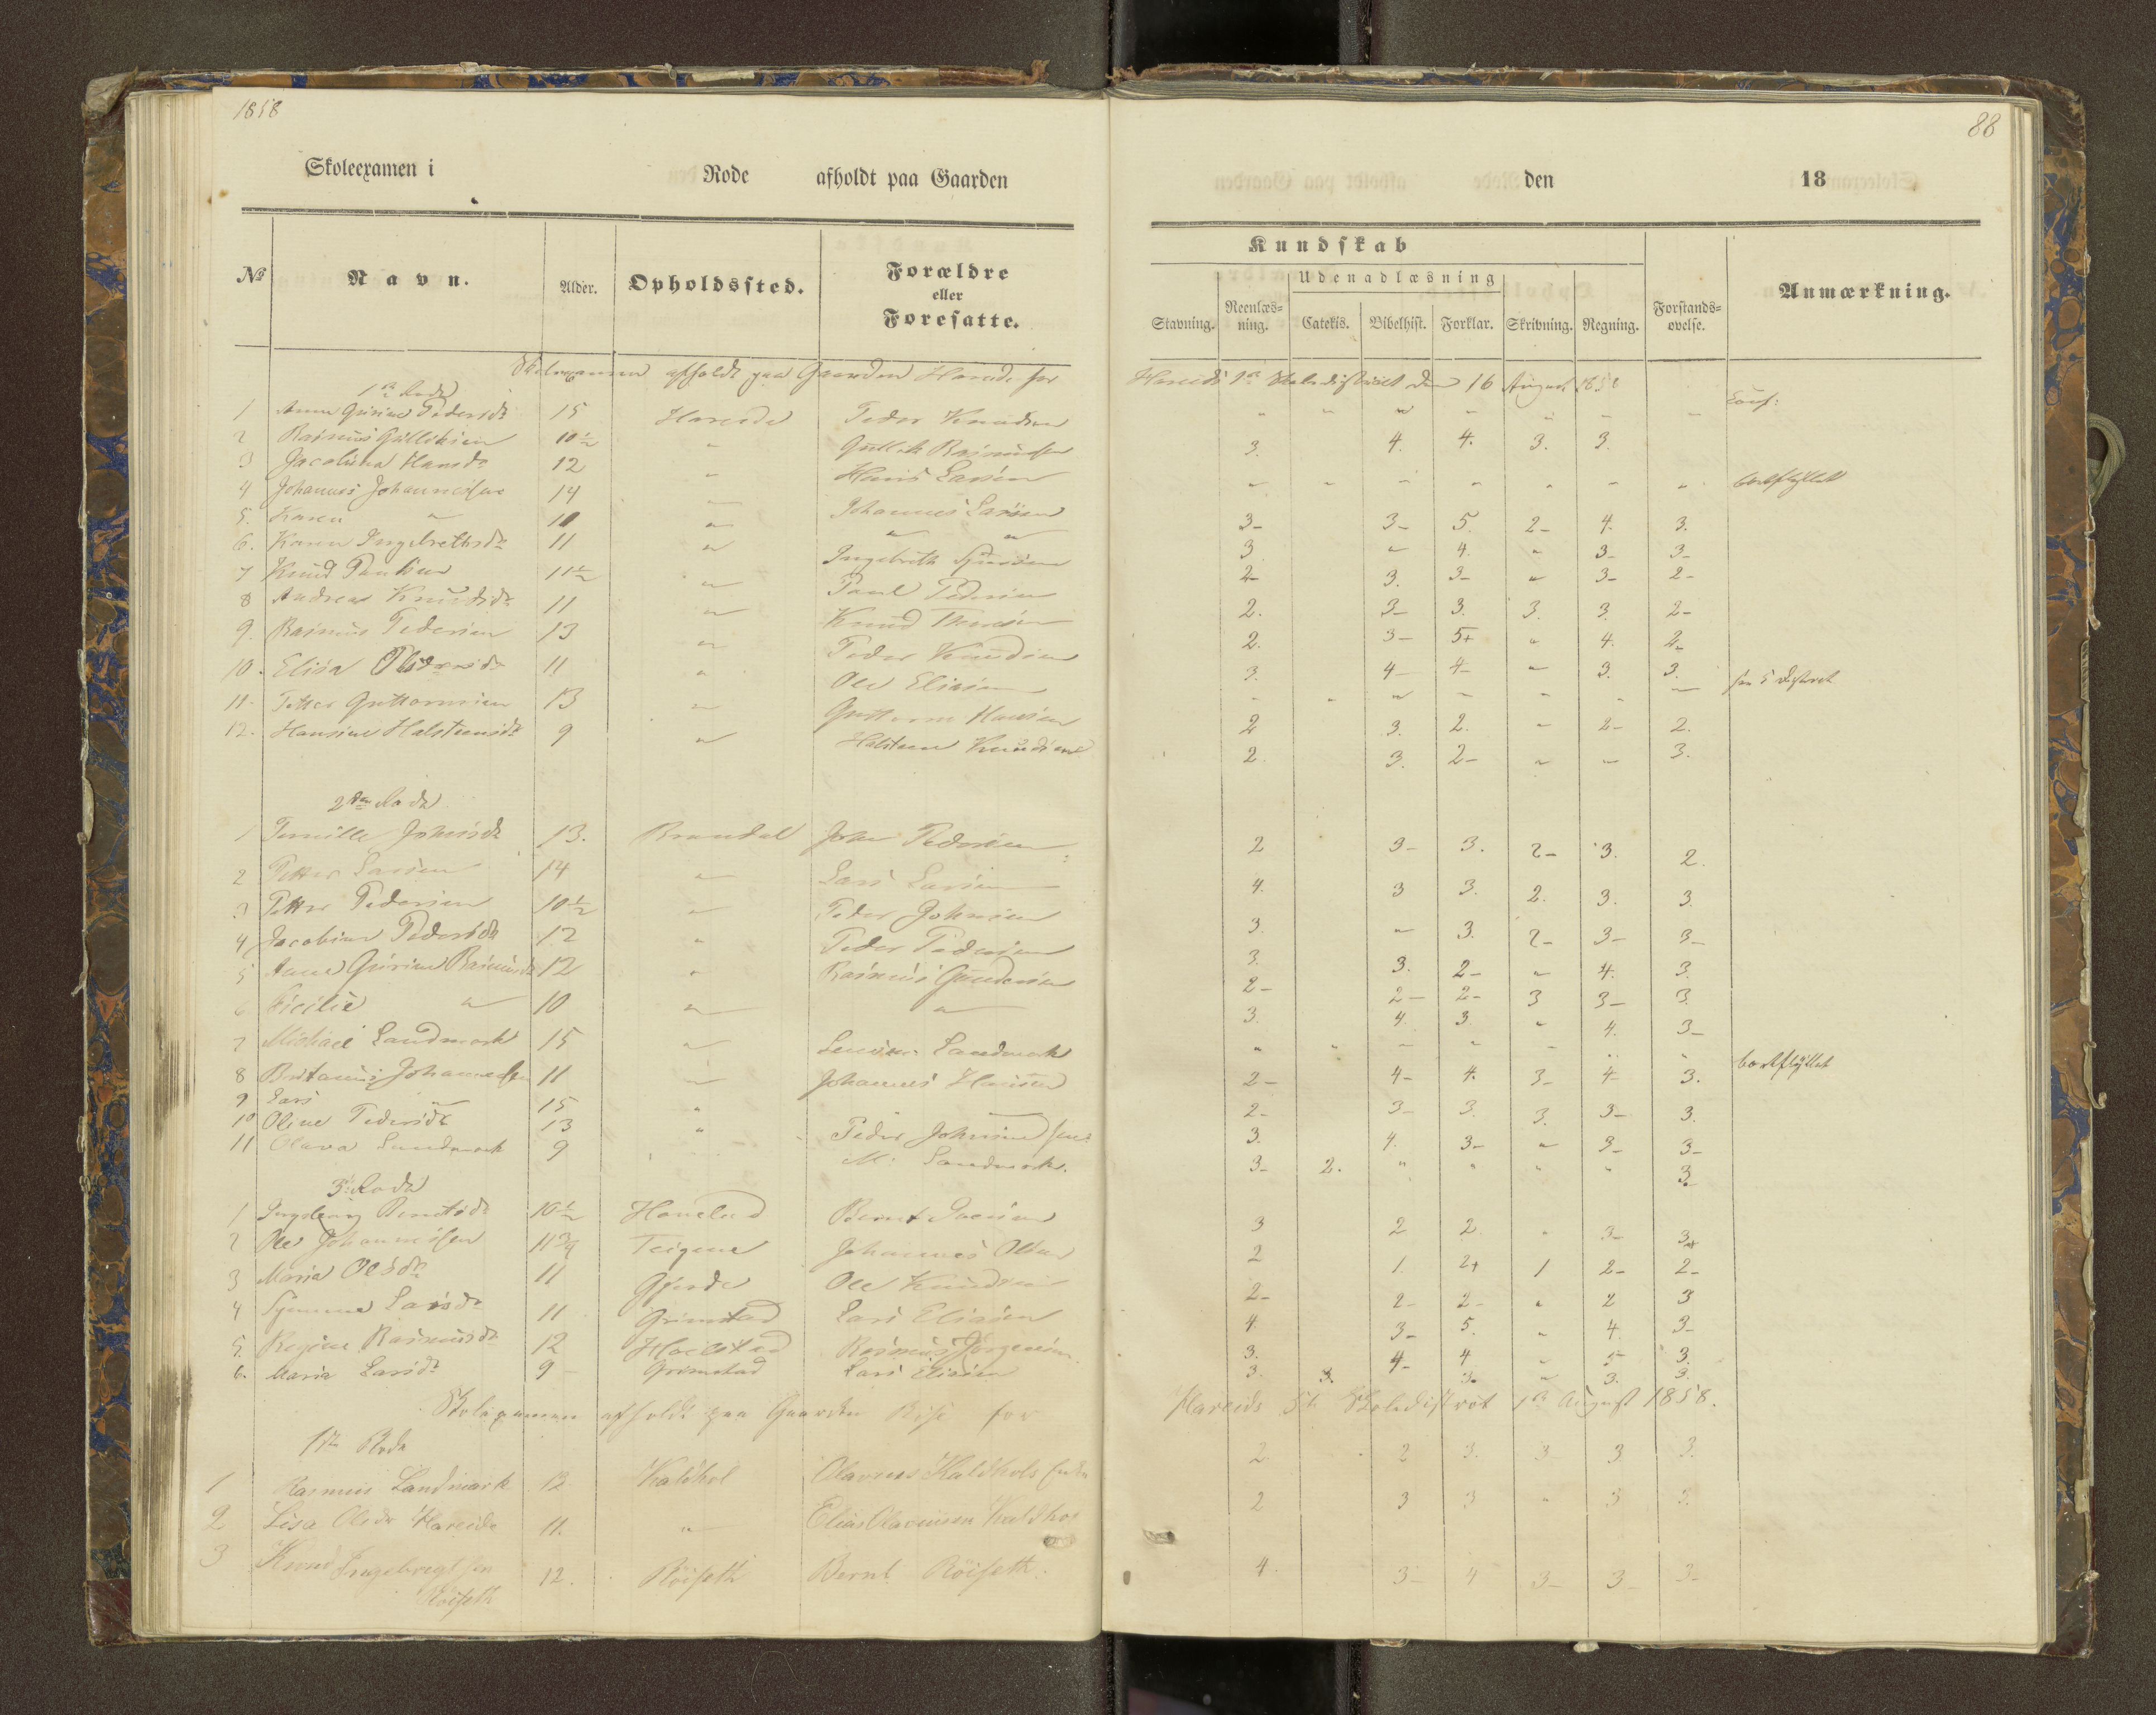 1858
88
Skoleexamen i Rode afholdt paa Gaarden den 18
Kundskab
Udenadlæsning
№ Navn. Alder. Opholdssted. Forældre eller Foresatte. Stavning. Reenlæs-ning. Catekis. Bibelhist. Forklar. Skrivning. Regning. Forstands-øvelse. Anmærkning.
Skoleexamen afholdt paa Gaarden Hareide for Hareids 1ste Skoledistrict den 16 August 1858
1ste Rode
1 Anne Gurine Pedersdr 15 Hareide Peder Knudsen " " " " " " " Conf:
2 Rasmus Gullichsen 10½ " Gullich Rasmussen 3. 4. 4. 3. 3.
3 Jacobina Hansdr 12 " Hans Larsen " " " " " " " bortflyttet
4 Johannes Johannessen 14 " Johannes Larsen 3- 3- 5. 2- 4. 3.
5. Karen " 10 " " " 3 " 4. " 3- 3-
6. Karen Ingebrethsdr 11 " Ingebreth 2- 3. 3- " 3- 2-
7 Knud Paulsen 11½ " Paul Pedersen 2. 3- 3. 3. 3. 2-
8 Andrea Knudsdr 11 " Knud 2. 3- 5+ " 4. 2-
9. Rasmus Pedersen 13 " Peder Knudsen 3. 4- 4- " 3. 3.
10. Elisa Olsdr 11 " Ole Eliasen " " " " " " " fra 5 district
11. Petter Guttormsen 13 " Guttorm Hansen 2 3. 2. " 2- 2.
12. Hansine Halsteensdr 9 " Halsteen Knudsen 2. 3. 2- " " 3.
2den Rode
1 Pernille Johnsdr 13. Brandal John Pedersen 2 3- 3. 2- 3. 2.
2 Petter Larsen 14 " Lars Larsen 4. 3 3. 2. 3. 3.
3 Petter Pedersen 10½ " Peder Johnsen 3. " 3. 2- 3- 3-
4 Jacobine Pedersdr 12 " Peder Pedersen 3. 3. 2- " 4. 3.
5 Anne Gurine Rasmusdr 12 " Rasmus Gundersen 2- 2- 2- 3 3- 3.
6 Cicilie " 10 " " 3. 4. 3. " 4. 3-
7 Michael Landmark 15 " Landmark " " " " " " " bortflyttet
8 Johannessen 11 " Johannes Hansen 2- 4- 4. 3- 4- 3.
9 Lars " 15 " 2- 3- 3. 3. 3- 3.
10 Oline Pedersdr 13 " Peder Johnsen 3. 4. 3- " 3- 3-
11 Olava Landmark 9 M. Landmark. 3- 2. " " " " 3.
3die Rode
1 Ingeborg Berntsdr 10½ Bernt 3 2 2. " 3- 3+
2 Ole Johannessen 11¾ Teigene Johannes Olsen 2 1. 2+ 1 2- 2-
3 Maria Olsdr 11 Gjerde Ole Knudsen 2- 2- 2- " 2 3
4 Larsdr 11 Grimstad Lars Eliasen 4. 3- 5. " 4. 3-
5. Regine Rasmusdr 12 Rasmus Jørgensen 3. 4- 4 " 5 3.
6. Maria Larsdr 9 - Grimstad Lars Eliasen 3. 3. 3. " 3. 3.
Skolexamen afholdt paa Gaarden Rise for Hareids 5te Skoledistrict 1ste August 1858.
1ste Rode
1 Rasmus Landmark 12 Kaldhol Olavus Kaldhols 2 2 3. 3- 3 3.
2 Lisa Olsdr Hareide 11. " Elias Olavussen Kaldhol 2 3 3 " 3 3.
3 Knud Ingebregtsen Röiseth 12. Röiseth Bernt Röiseth. 4. 3- 4 3- 3- 3-